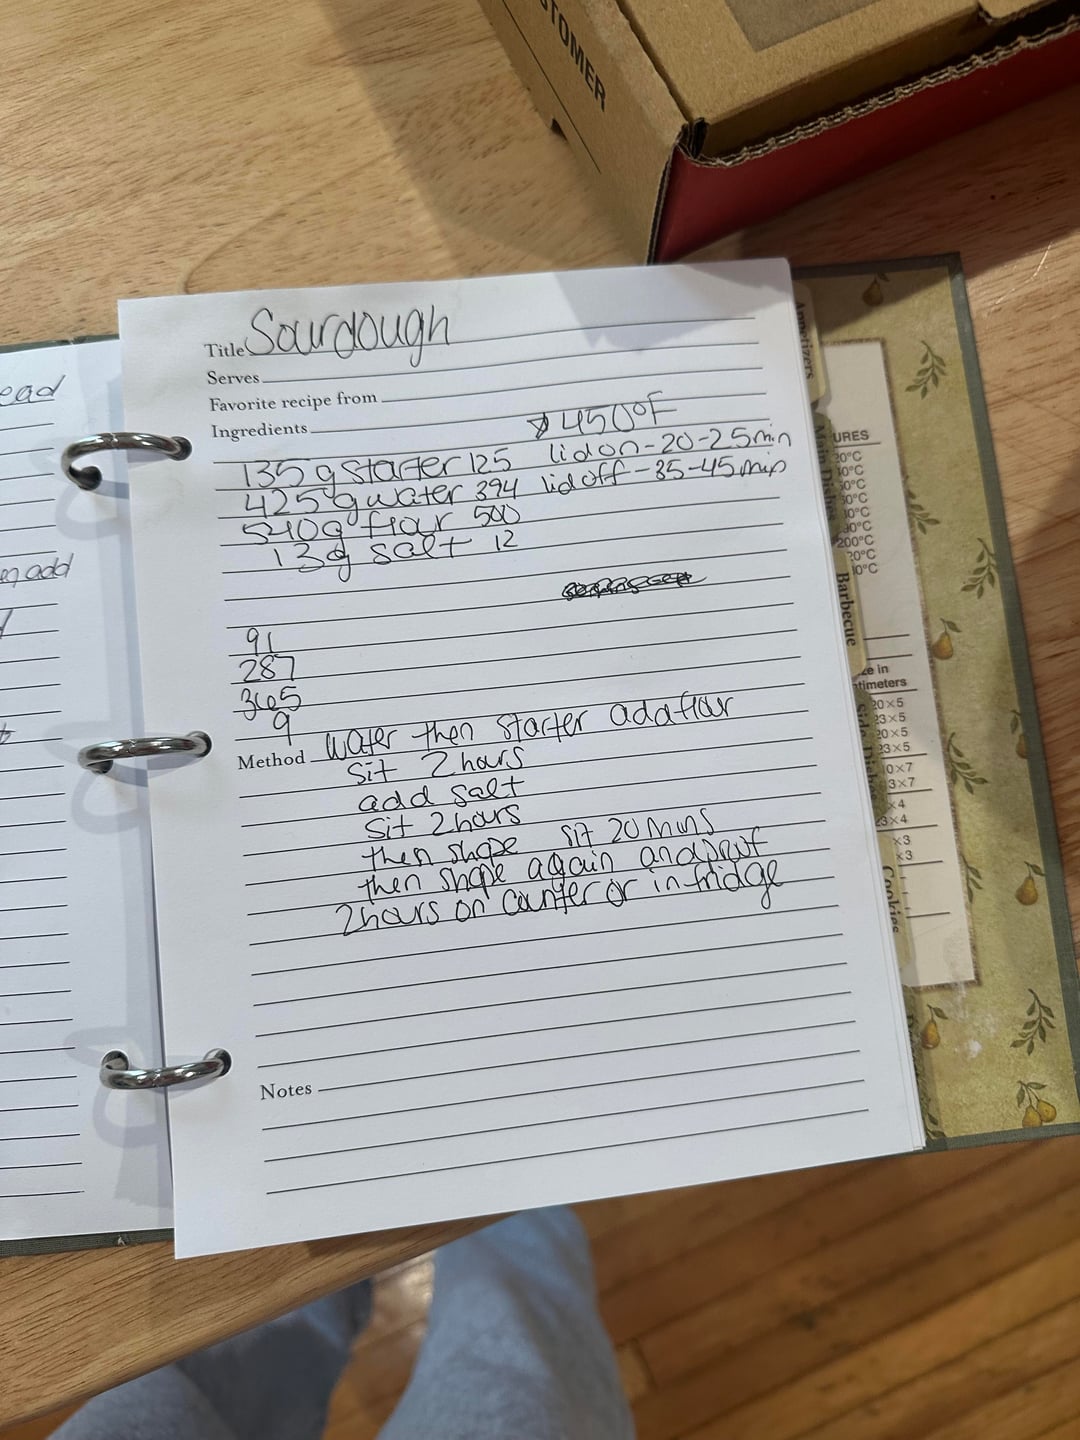 STOMER
Title Sourdough
Serves
Favorite recipe from
Ingredients
450°F
135 g starter 125 lid on - 20-25 min
425 g water 394 lid off - 35-45 min
540g flour 500
13g salt 12
91
287
365
9
Method water then starter add flour
sit 2 hours
add salt
sit 2 hours
then shape sit 20 mins
then shape again and proof
2 hours on counter or in fridge
Notes
ead
add
Appetizers
Main Dishes
Barbecue
Side Dishes
Cookies
URES
20°C
200°C
20°C
ze in
timeters
20×5
23×5
20×5
23×5
0×7
3×7
×4
23×4
×3
×3